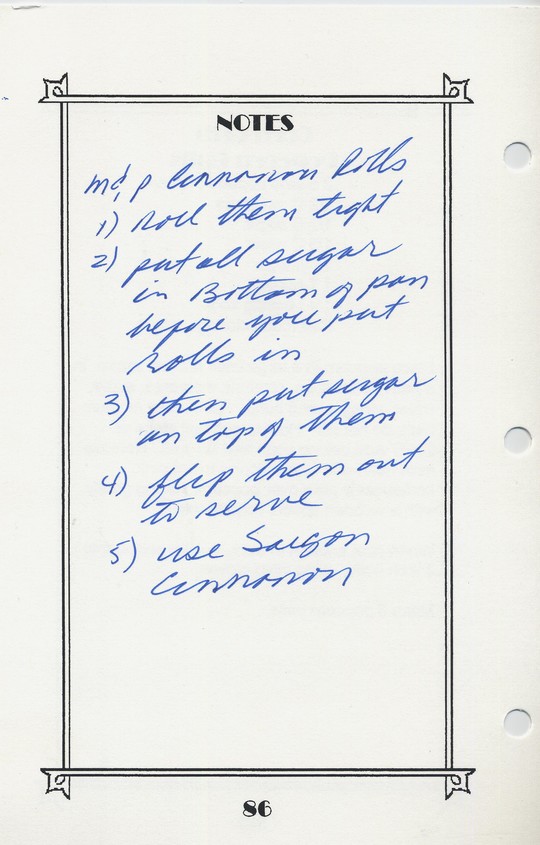 NOTES
md, p Cinnamon Rolls
1) Roll them tight
2) put all sugar
in Bottom of pan
before you put
Rolls in
3) then put sugar
on top of them
4) flip them out
to serve
5) use Saigon
Cinnamon
86